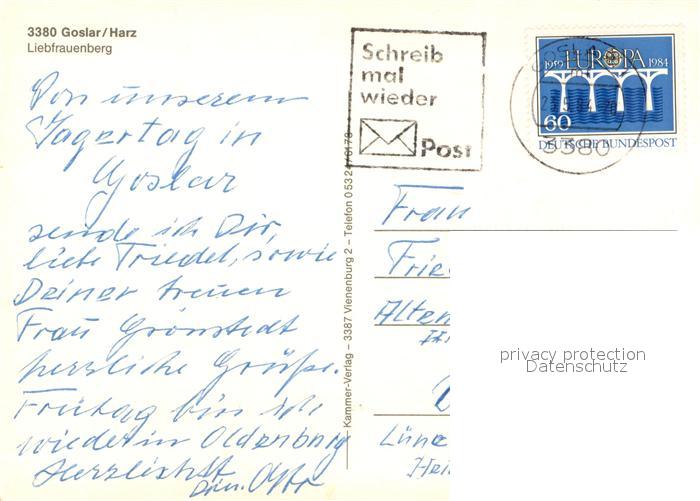 3380 Goslar/Harz
Liebfrauenberg
Von unserem
Jägertag in
Goslar
sende ich Dir,
liebe Friedel, sowie
Deiner treuen
Frau Grönstedt
herzliche Grüße.
Freitag bin ich
wieder in Oldenburg
Herzlichst
Dein
Kammer-Verlag – 3387 Vienenburg 2 – Telefon 05324/6178
Schreib
mal
wieder
Post
GOSLAR
3380
1959 EUROPA 1984
60
DEUTSCHE BUNDESPOST
Frau
Frie
Alten
Lüne
Hei
privacy protection
Datenschutz